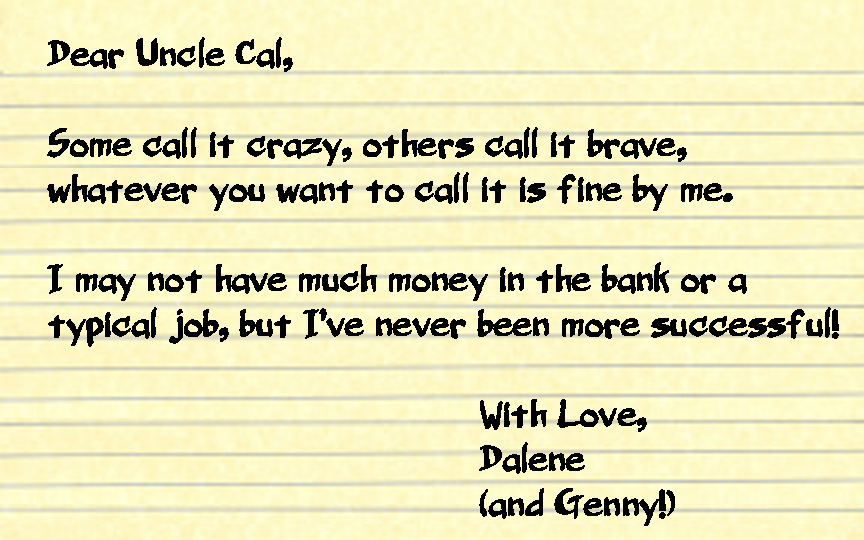 Dear Uncle Cal,
Some call it crazy, others call it brave,
whatever you want to call it is fine by me.
I may not have much money in the bank or a
typical job, but I've never been more successful!
With Love,
Dalene
(and Genny!)